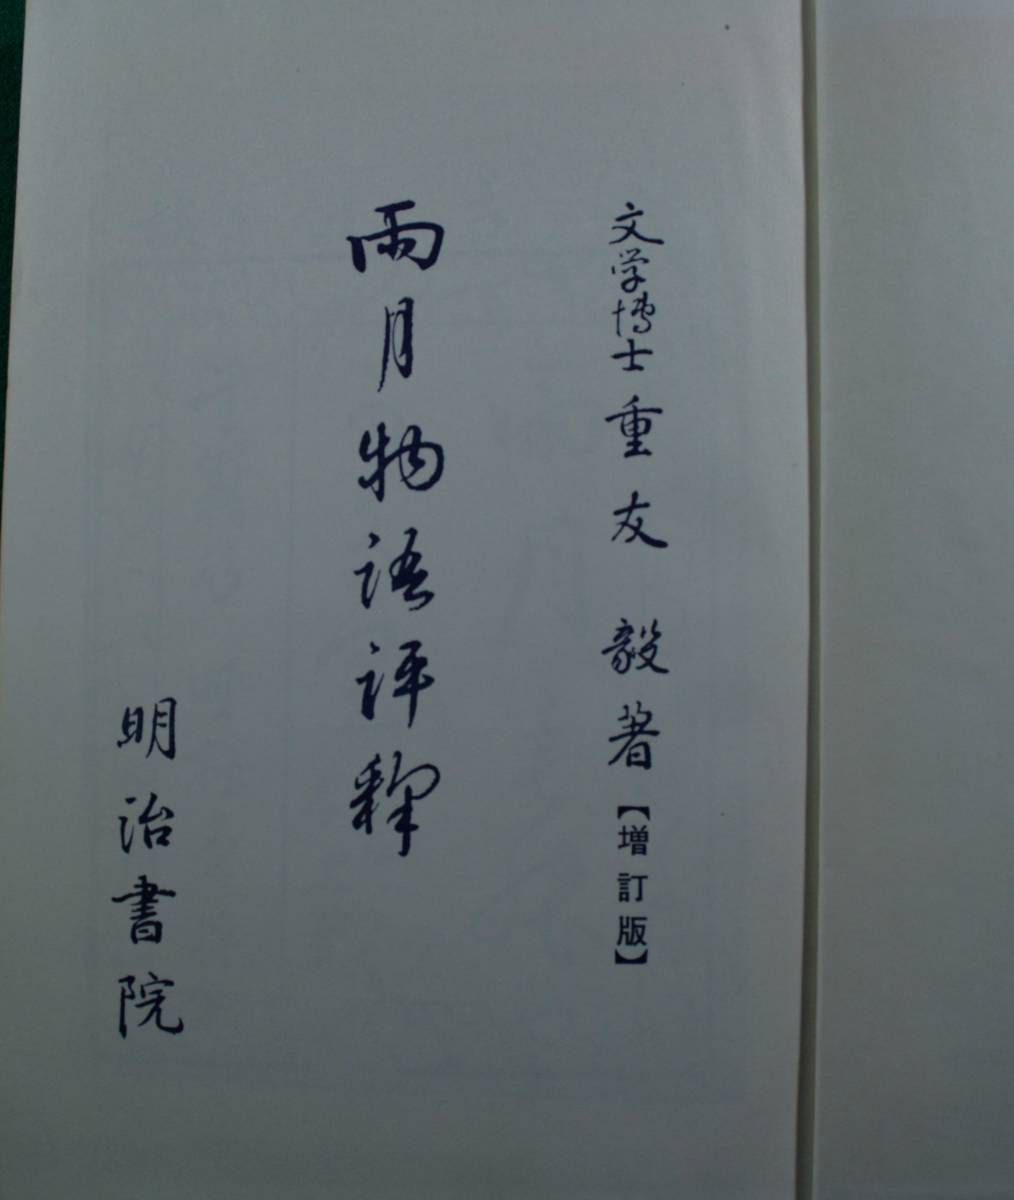 文学博士重友毅著【増訂版】
雨月物語評釈
明治書院